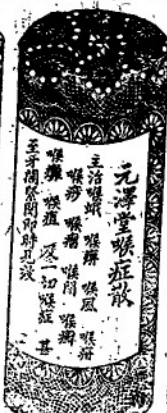 元澤堂喉症散
主治喉蛾 喉痺 喉風 喉疳
喉痧 喉瘤 喉閉 喉癬
喉癰 喉疽 及一切喉症 甚
至牙關緊閉即時見效